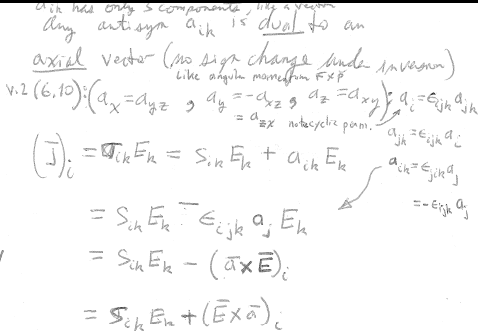 a_ik has only 3 components, like a vector
Any antisym a_ik is dual to an
axial vector (no sign change under inversion)
Like angular momentum r̄×p̄
v.2 (6,10): (a_x = a_yz , a_y = -a_xz , a_z = a_xy); a_i = ϵ_ijk a_jk
= a_zx note cyclic perm.
a_jk = ϵ_ijk a_i
(j̄)_i = σ_ik E_k = S_ik E_k + a_ik E_k
a_ik = ϵ_jik a_j
= -ϵ_ijk a_j
= S_ik E_k - ϵ_ijk a_j E_k
= S_ik E_k - (ā×Ē)_i
= S_ik E_k + (Ē×ā)_i